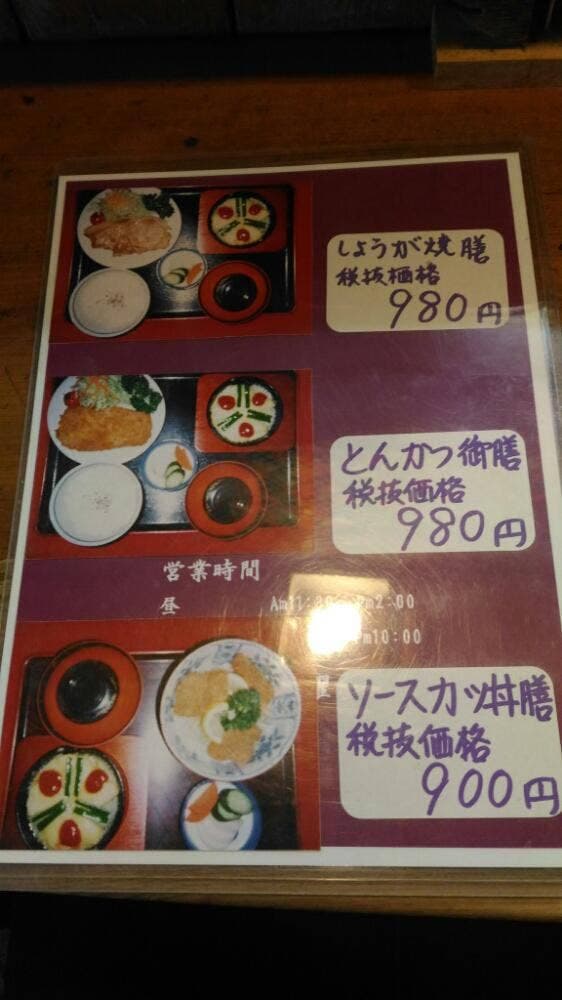 しょうが焼膳
税抜価格
980円
とんかつ御膳
税抜価格
980円
営業時間
昼 Pm2:00
Pm10:00
ソースカツ丼膳
税抜価格
900円